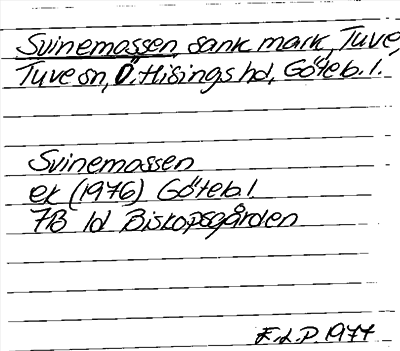 Svinemossen, sank mark, Tuve,
Tuve sn, Ö. Hisings hd, Göteb. l.
Svinemossen
ek (1976) Göteb l
7B 1d Biskopsgården
E.L.P. 1977